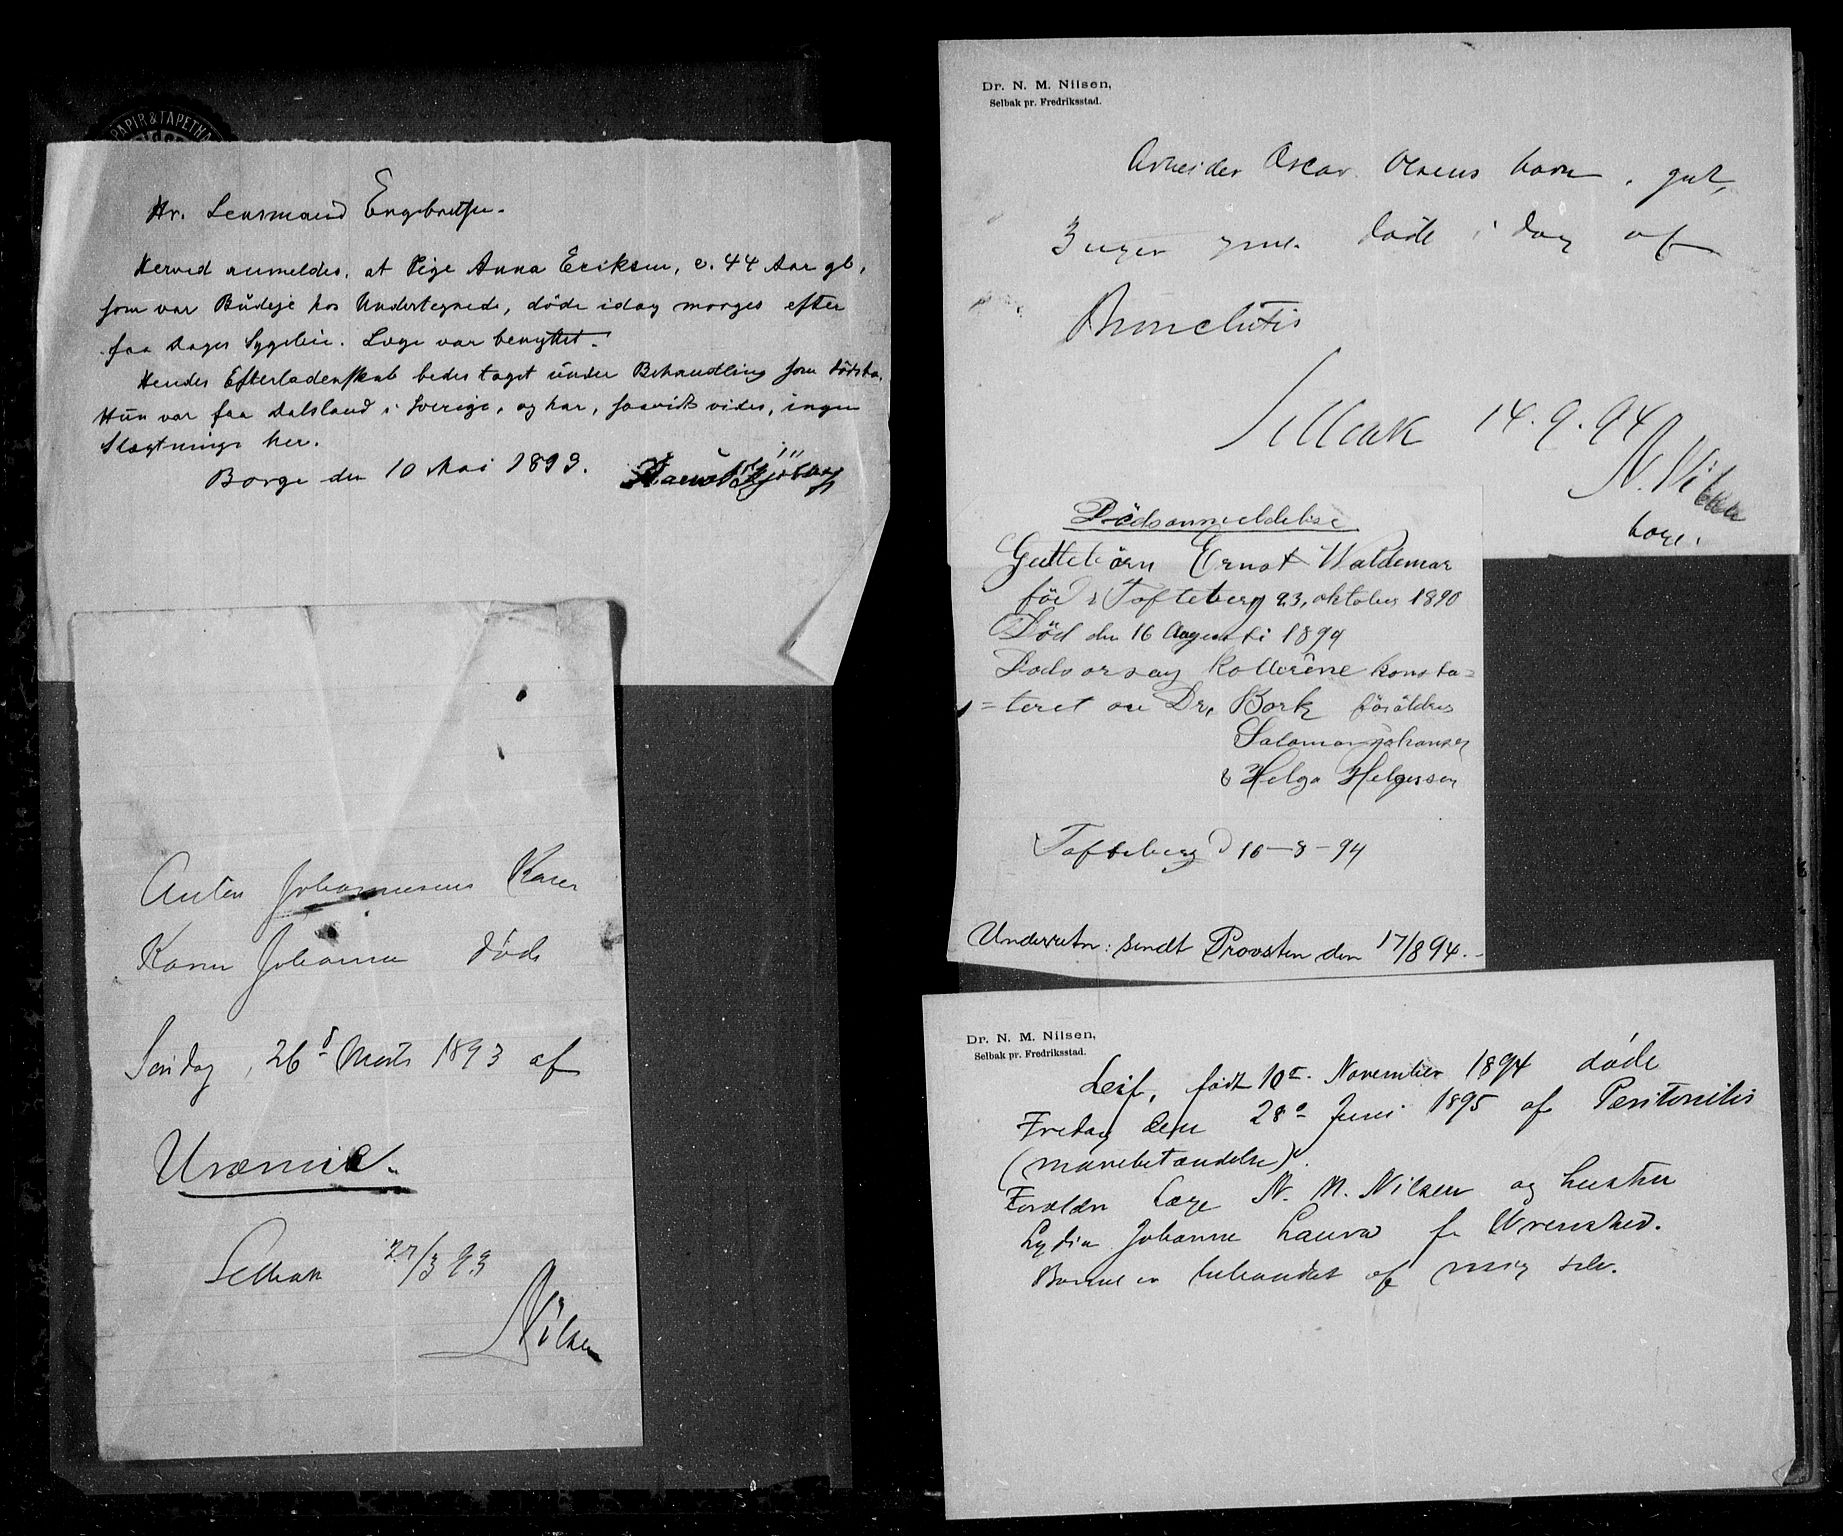 PAPIR & TAPETHA
Hr. Lensmand Engebretsen.
Herved anmeldes, at Pige Anna Eriksen, c. 44 Aar gl,
som var Budeje hos Undertegnede, døde idag morges efter
faa Dages Sygeleie. Læge var benyttet.
Hendes Efterladenskab bedes taget under Behandling som Dødsbo.
Hun var fra Dalsland i Sverige, og har, saavidt vides, ingen
Slægtninge her.
Borge den 10 Mai 1893.
Anton Johannesens
Karen Johanna døde
Søndag, 26d Marts 1893 af
Uræmie.
Selbak 27/3 93
Nilsen
Dr. N. M. Nilsen,
Selbak pr. Fredriksstad.
Arbeider Oscar Olsens barn, gut,
3 uger gml. døde i dag af
Bronchitis
Selbak 14.9.94
N. Nilsen
læge.
Dødsanmeldelse
Guttebørn Ernst Waldemar
fød i Tofteberg 23, oktober 1890
Død den 16 Augusti 1894
Dødsorsag kollerine konsta=
=teret av Dr, Bork föräldrer
Salomon Johansen
& Helga Helgesen
Tofteberg d 16-8-94
Underretn: sendt Provsten den 17/8 94.
Dr. N. M. Nilsen,
Selbak pr. Fredriksstad.
Leif, født 10de November 1894 døde
Fredag den 28de Juni 1895 af Peritonitis
(mavebetændelse).
Forældre Læge N. M. Nilsen og hustru
Lydia Johanne Laura f.
Barnet er behandlet af mig selv.